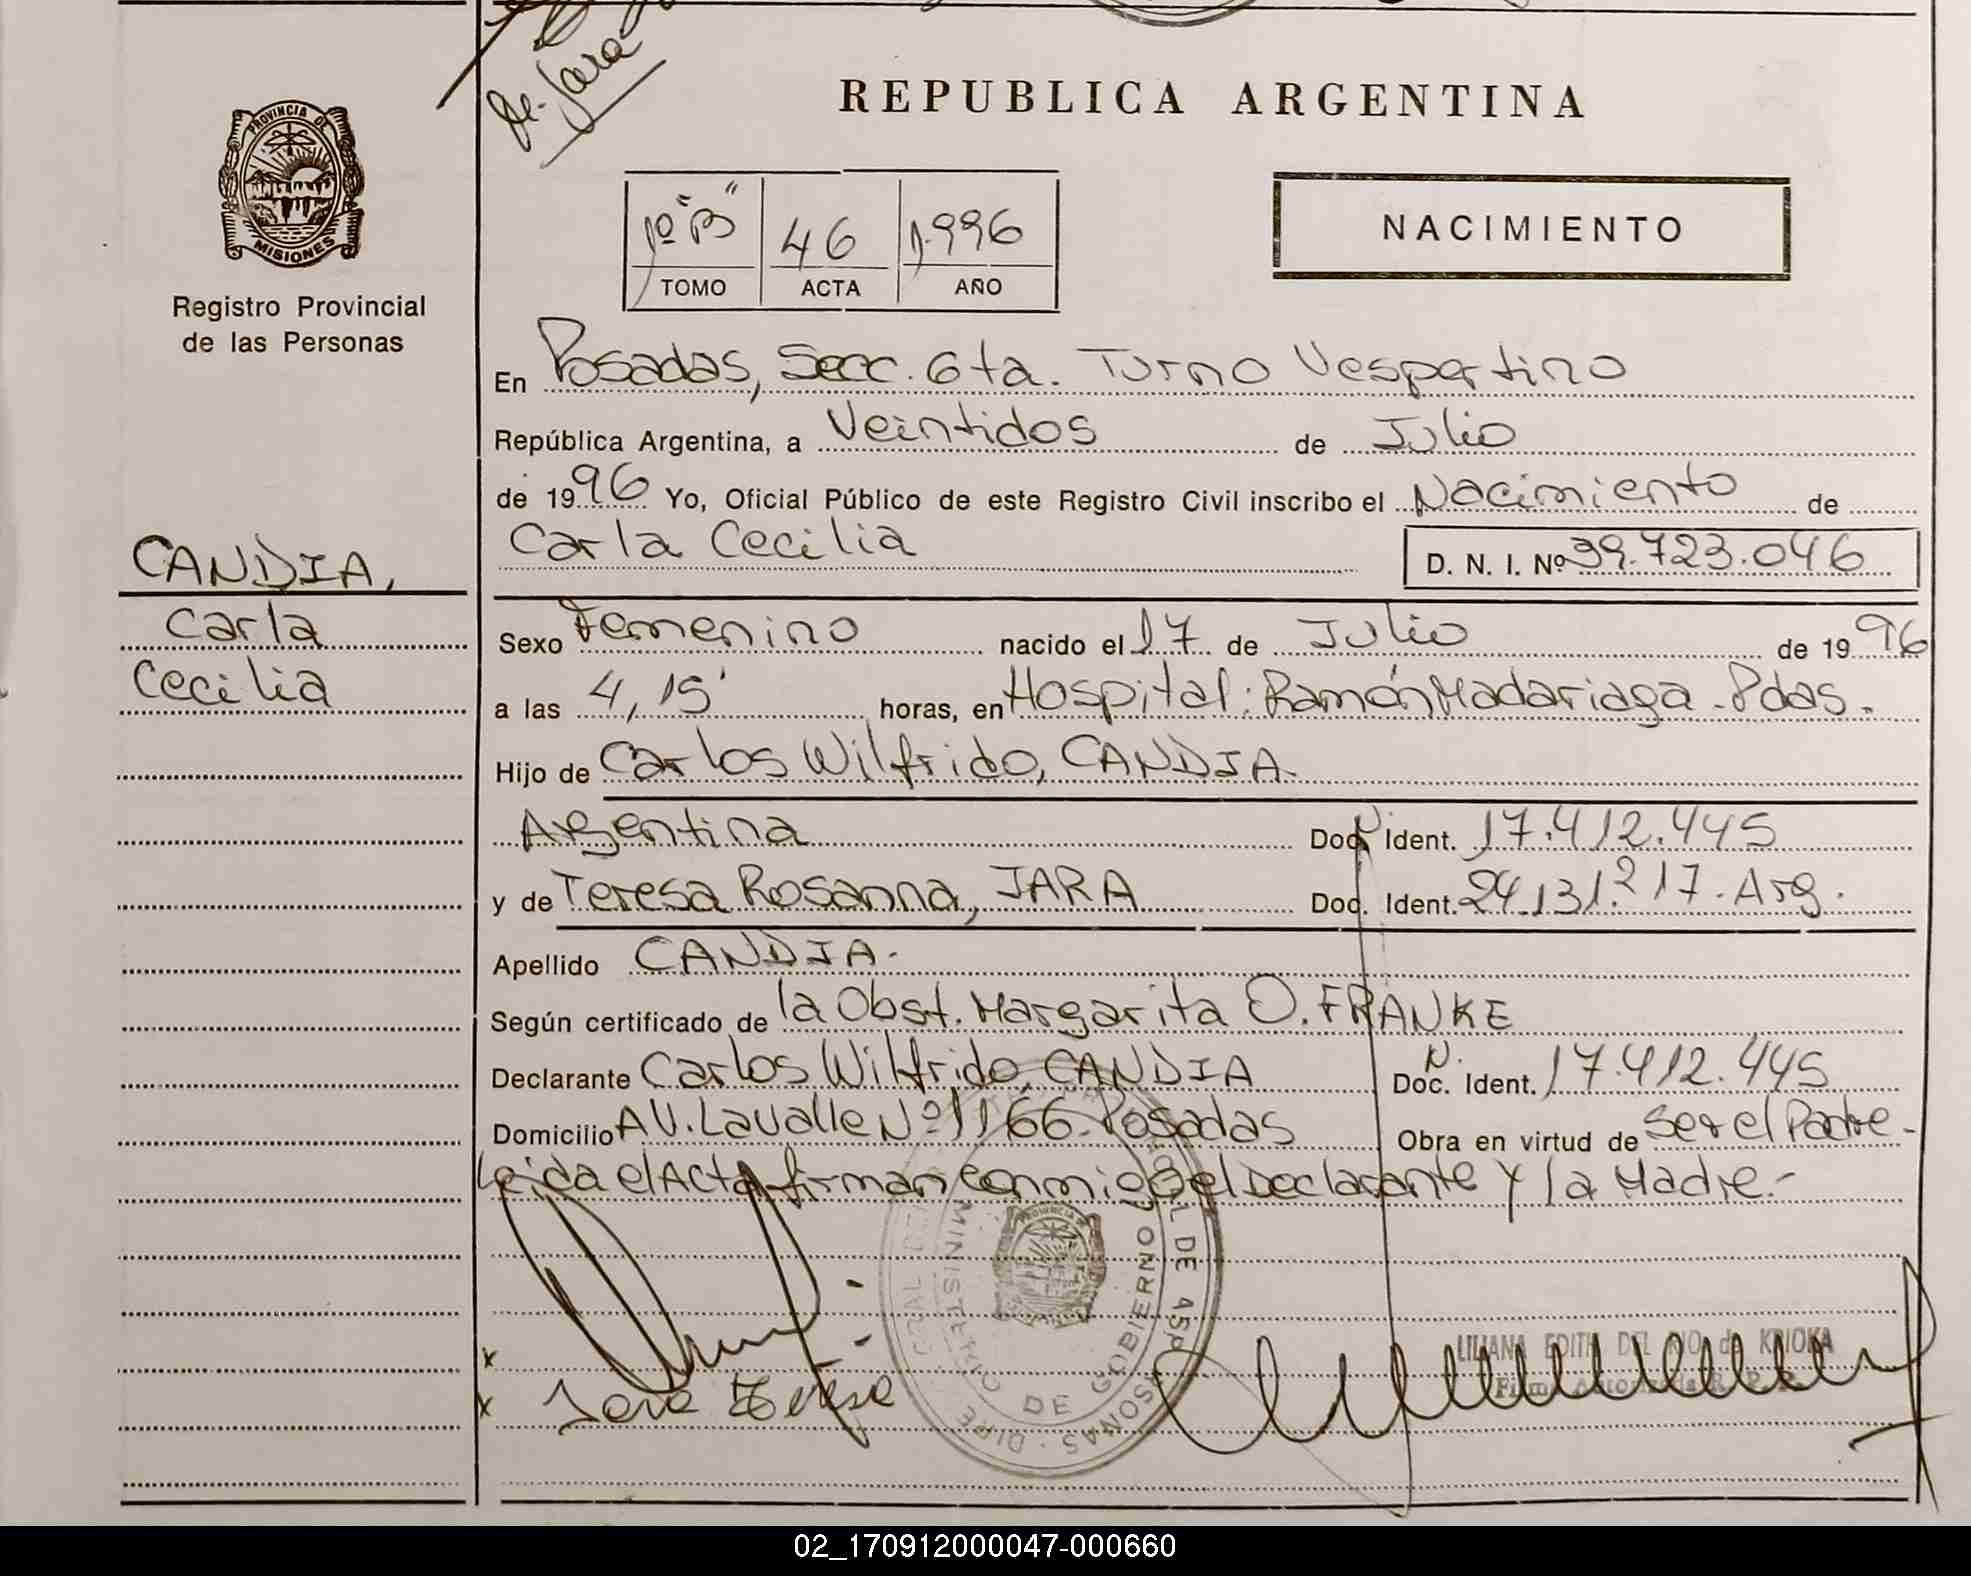 de Jara
REPUBLICA ARGENTINA
PROVINCIA DE
MISIONES
Registro Provincial
de las Personas
1º "B" 46 1996
TOMO ACTA AÑO
NACIMIENTO
En Posadas, Secc. 6ta. Turno Vespertino
República Argentina, a Veintidos de Julio
de 1996 Yo, Oficial Público de este Registro Civil inscribo el Nacimiento de
Carla Cecilia D. N. I. Nº 39.723.046
CANDIA,
Carla
Cecilia
Sexo Femenino nacido el 17 de Julio de 1996
a las 4,15' horas, en Hospital: Ramón Madariaga - Pdas.
Hijo de Carlos Wilfrido, CANDIA.
Argentina Doc. N. Ident. 17.412.445
y de Teresa Rosanna, JARA Doc. Ident. 24.131.217. Arg.
Apellido CANDIA.-
Según certificado de la Obst. Margarita O. FRANKE
Declarante Carlos Wilfrido, CANDIA Doc. N. Ident. 17.412.445
Domicilio AV. Lavalle Nº 1166. Posadas Obra en virtud de ser el Padre.-
Leida el Acta firman conmigo el Declarante y la Madre.-
MINISTERIO DE GOBIERNO
PROVINCIA DE
LILIANA EDITH DEL RIO de KRIOKA
Firma Autorizada R. P. P.
x
x Jara Teresa
02_170912000047-000660